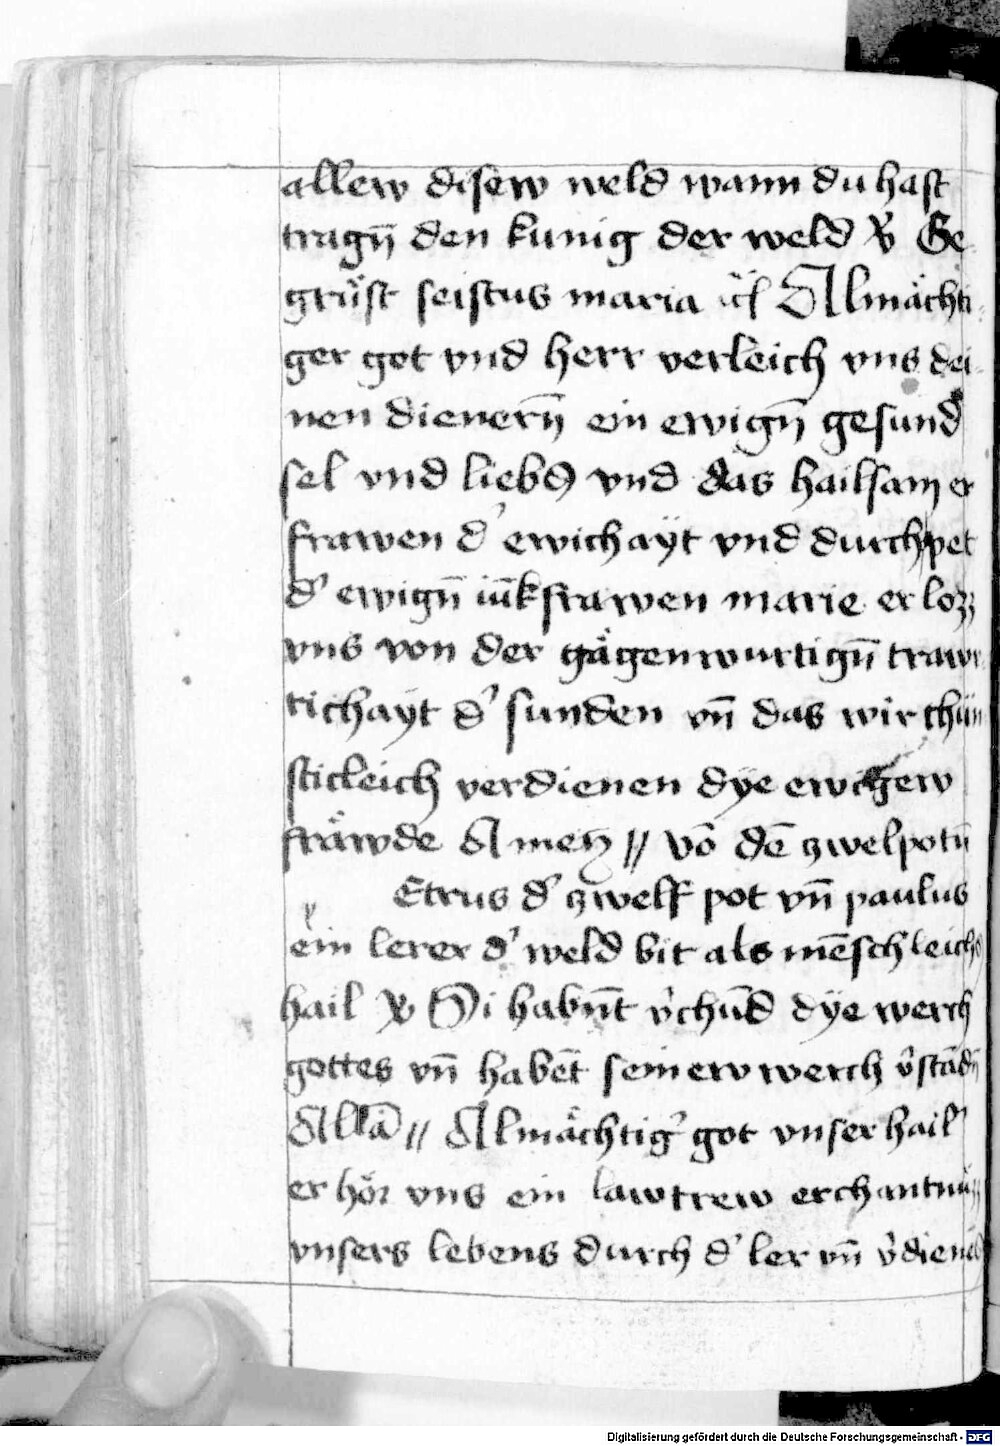 allew disew weld wann du hast
tragn̄ den kunig der weld V̓ Ge-
grüst seistus maria ic̄ Almächti-
ger got vnd herr verleich vns dei-
nen dienern̄ ein ewign̄ gesund
sel vnd liebs vnd das hailsam er
frawen d' ewichayt vnd durch pet
d' ewign̄ iūkfrawen marie er loz
vns von der gägenwurtign̄ trawr
tichayt d' sunden vn̄ das wir chün
sticleich verdienen dye ewigew
fräwde Amen // vō dē zwelpotn̄
Etrus d' zwelf pot vn̄ paulus
ein lerer d' weld bit als mēschleichs
hail V̓ Si habn̄t v̓chūd dye werch
gottes vn̄ habēt seinew werch v̓stādn̄
Allā // Almächtig' got vnser hail'
er hör vns ein lawtrew erchantnüzz
vnsers lebens durch d' ler vn̄ v̓dienē
Digitalisierung gefördert durch die Deutsche Forschungsgemeinschaft - DFG